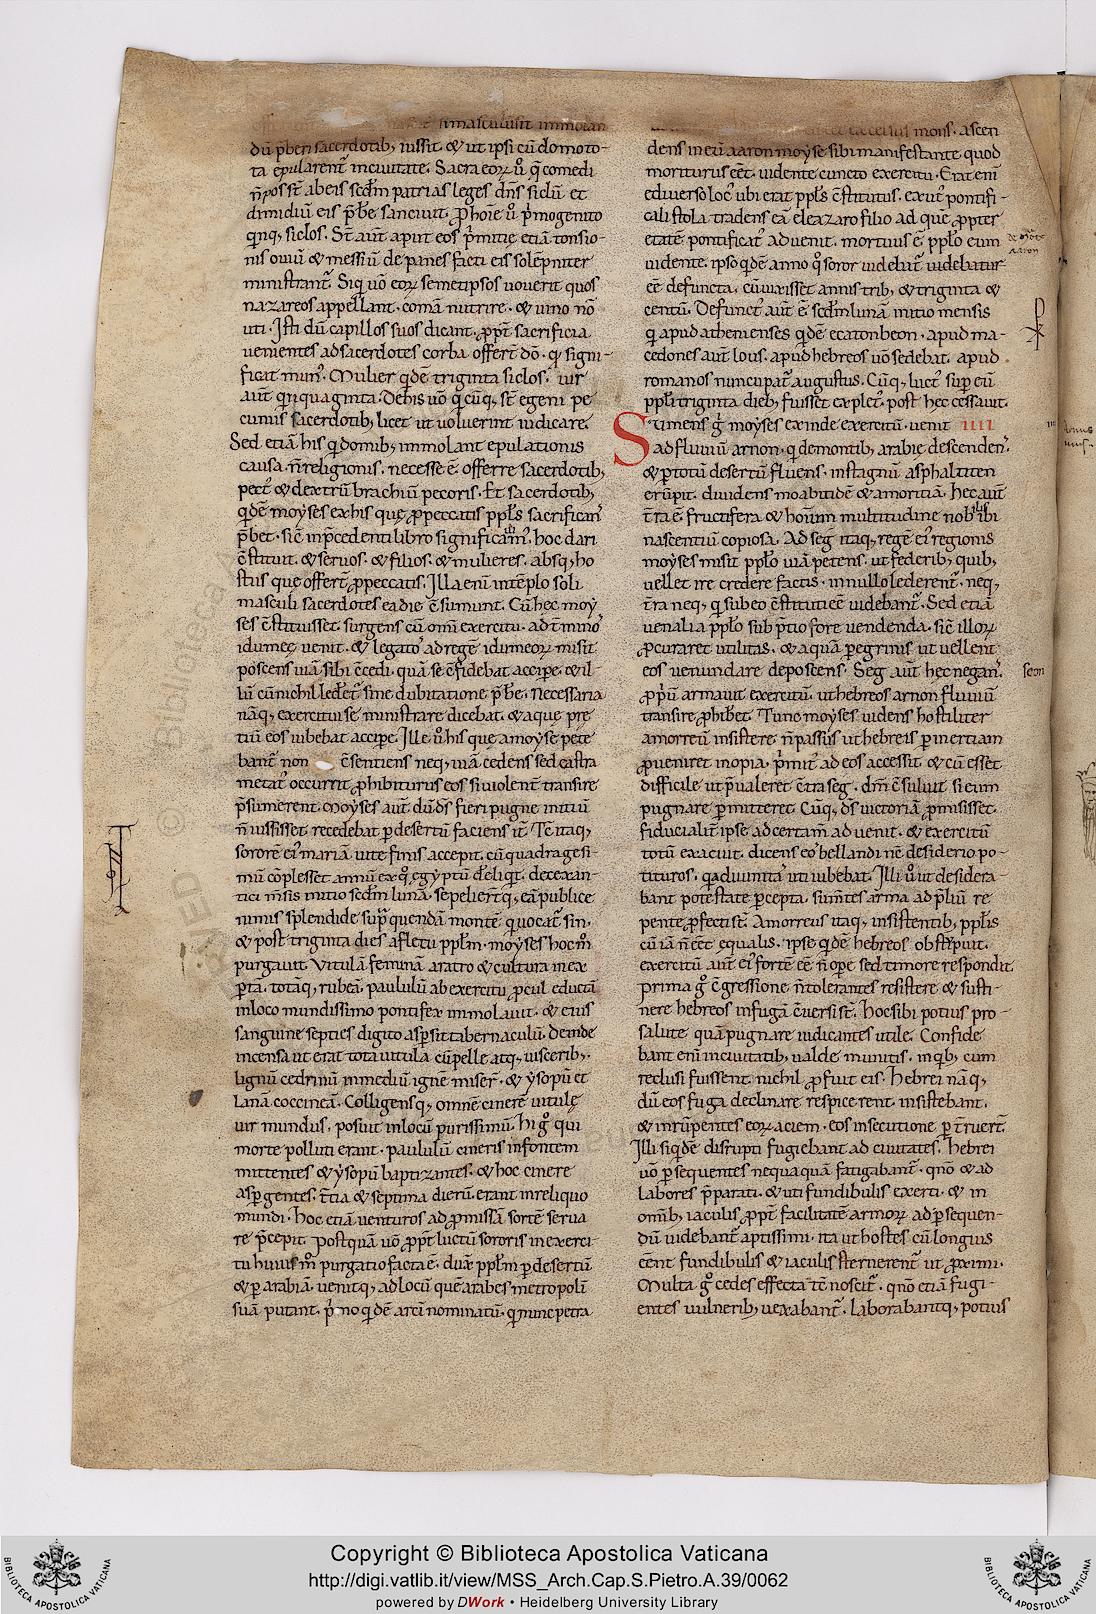 simasculusit immolan
dū p̄beri sacerdotib; iussit. & ut ipsi cū domo to-
ta epularent̄ incivitate. Sacra eoꝝ ũ. q̄ comedi
n̄ posst̄ abeis scd̄m patrias leges dn̄s siclū et
dimidiū eis p̄bẽ sancivit. ꝓ hoĩe ũ p̄mogenito
q̄nq; siclos. St̄ aut̄ aput eos p̄mitię etiā tonsio-
nis oviū & messiū de panes facti eis solēpniter
ministrant̄. Siq uō eoꝝ semetipsos voverit quos
nazareos appellant. comā nutrire. & vino nō
uti. Isti dū capillos suos dicant. ꝓpt̄ sacrificia
venientes adsacerdotes corba offert̄ dō. q̄ signi-
ficat mun᷒. Mulier q̄dē triginta siclos. uir
aut̄ q̄nquaginta. Dehis uō q̄cūq; st̄ egeni pe
cuniis sacerdotib; licet ut voluerint iudicare.
Sed etiā his q̄ domib; immolant epulationis
causa. n̄ religionis. necesse ē. offerre sacerdotib;
pect᷒ & dextrū brachiū pecoris. Et sacerdotib;
q̄dē moyses ex his quę ꝓpeccatis ppl̄s sacrificant̄
p̄bet. sic̄ inp̄cedenti libro significavim᷒. hoc dari
c̄stituit. & servos. & filios. & mulieres. absq; ho
stiis que offert̄ ꝓpeccatis. Illa enī intēplo soli
masculi sacerdotes eadie c̄sumunt. Cū hec moy
ses c̄stituisset. surgens cū om̄i exercitu. ad t̄minos
idumeę venit. & legatos ad regē idumeoꝝ misit
poscens viā sibi c̄cedi. quā se c̄fidebat accipe. & il
lū cū nichil lederet̄ sine dubitatione p̄bẽ. Necessaria
nāq; exercitui se ministrare dicebat. & aque pre
tiū eos iubebat accipe. Ille ũ his que amoyse pete
bant̄ non c̄sentiens neq; viā cedens sed castra
metat᷒ occurrit ꝓhibiturus eos si violent̄ transire
p̄sumerent. Moyses aut̄ dū ds̄ fieri pugne initiū
n̄ iussisset. recedebat p desertū faciens it̄. Tc̄ itaq;
sororē ei᷒ mariā vite finis accepit. cū quadragesi-
mū cōplesset annū ex q̄ ęgyptū dereliq̄t. decexan-
tici m̄sis initio scd̄m lunā. sepelient̄q; eā publice
nimis splendide sup̄ quendā montē quocat̄ sin.
& post triginta dies afletu ppl̄m. moyses hoc m̊
purgavit. Vitulā feminā aratro & cultura inex
p̄tā. totāq; rubeā. paululū abexercitu ꝓcul eductā
inloco mundissimo pontifex immolavit. & eius
sanguine septies digito aspsit tabernaculū. Deinde
incensa ut erat tota vitula cū pelle atq; visceriб;.
lignū cedrinū immediū ignē miser̄. & ysopū et
Lanā coccineā. Colligensq; omnē cinerē vitulę
vir mundus. posuit inlocū purissimū. Hi g̊ qui
morte polluti erant. paululū cineris infontem
mittentes & ysopū baptizantes. & hoc cinere
aspgentes. t̄tia & septima dierū. erant inreliquo
mundi. Hoc etiā venturos ad ꝓmissā sortē serva
re p̄cepit. Postquā uō ꝓpt̄ luctū sororis inexerci-
tu huius m̊ purgatio facta ē. duxit ppl̄m p desertū
& p arabiā. venitq; adlocū quē arabes metropolī
suā putant. p̄mo q̄dē arcē nominatū. q̄ nunc petra
excelsus mons. ascen
dens ineū aaron moyse sibi manifestante quod
moriturus eēt. vidente cuncto exercitu. Erat enī
ediverso loc᷒ ubi erat ppl̄s c̄stitutus. exut᷒ pontifi-
cali stola. tradens eā eleazaro filio ad quē ꝓpter
etatē pontificat᷒ advenit. mortuus ē pplo eum
vidente. ipso q̄dē anno q̊ soror videbat̄ videbatur
eē defuncta. cū vixisset annis trib; & triginta &
centū. Defunct᷒ aut̄ ē scd̄m lunā initio mensis
q apud athenienses q̄dē ecatonbeon. apud ma-
cedones aut̄ lous. apud hebreos uō sedebat. apud
romanos nuncupat̄ augustus. Cūq; luct᷒ sup eū
ppl̄i triginta dieb; fuisset explet᷒. post hęc cessavit.
Stimens g̊ moyses exinde exercitū. venit IIII
ad fluviū arnon. q̄ demontib; arabię descendens.
& p totū desertū fluens. instagnū asphaltiten
erūpit. dividens moabitidē & amoritiā. Hec aut̄
t̄ra ē. fructifera & hoīum multitudine nob᷒ ibi
nascentiū copiosa. Ad seg itaq; regē ei᷒ regionis
moyses misit pplo viā petens. ut federib; quib;
vellet ire credere factis. innullo lederent̄. neq;
t̄ra neq; q̄ sub eo c̄stituti eē videbant̄. Sed etiā
venalia pplo sub p̄tio fore vendenda. sic̄ illoꝝ
ꝓcuraret utilitas. & aquā pegrinis ut vellent
eos venundare deposcens. Seg aut̄ hec negans.
ꝓp̄ū armavit exercitū. ut hebreos arnon fluviū
transire ꝓhib&. Tunc moyses videns hostiliter
amorreū insistere. n̄ passus ut hebreis p inertiam
ꝓveniret inopia. p̄mit᷒ ad eos accessit. & cū esset
difficile ut p̄valeret c̄tra seg. dm̄ c̄suluit si eum
pugnare pmitteret. Cūq; ds̄ victoriā ꝓmisisset.
fiducialit̄ ipse adcertam̄ advenit. & exercitū
totū exacuit. dicens eo bellandi nc̄ desiderio po-
tituros. q̄a divinitas uti iubebat. Illi ũ ut desidera-
bant potestate pcepta. sum̄tes arma ad p̄liū re
pente ꝓfecti st̄. Amorreus itaq; insistentib; ppl̄is
cū iā n̄ eēt equalis. ipse q̄dē hebreos obst̄puit.
exercitū aut̄ ei᷒ fortē eē n̄ ope sed timore respondit.
Prima g̊ c̄gressione n̄ tolerantes resistere & susti-
nere hebreos infugā c̄versi st̄. Hoc sibi potius pro-
salute quā pugnare iudicantes utile. Confide
bant enī incivitatib; valde munitis. inq̄b; cum
reclusi fuissent. nichil ꝓfuit eis. Hebrei nāq;
dū eos fuga declinare respicerent. insistebant.
& inrūpentes eoꝝ aciem. eos insecutione pt̄ruert̄.
Illi siq̄dē disrupti fugiebant ad civitates. Hebrei
uō psequentes nequaquā fatigabant̄. qn̄o & ad
labores p̄parati. & uti fundibulis exerti. & in
om̄ib; iaculis ꝓpt̄ facilitatē armoꝝ ad psequen-
dū videbant̄ aptissimi. ita ut hostes cū longius
eēnt fundibulis & iaculis sternerent̄ ut ꝓximi.
Multa g̊ cedes effecta tc̄ noscit̄. qn̄o etiā fugi-
entes vulnerib; vexabant̄. Laborabantq; potius
aaron
seon
Copyright © Biblioteca Apostolica Vaticana
http://digi.vatlib.it/view/MSS_Arch.Cap.S.Pietro.A.39/0062
powered by DWork • Heidelberg University Library